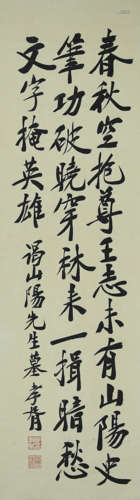 春秋空抱尊王志未有山陽史
筆功破曉穿林来一揖暗愁
文字掩英雄
謁山陽先生墓 孝胥